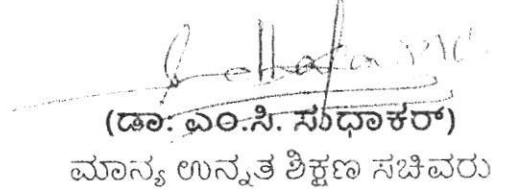 (ಡಾ: ಎಂ.ಸಿ. ಸುಧಾಕರ್)
ಮಾನ್ಯ ಉನ್ನತ ಶಿಕ್ಷಣ ಸಚಿವರು